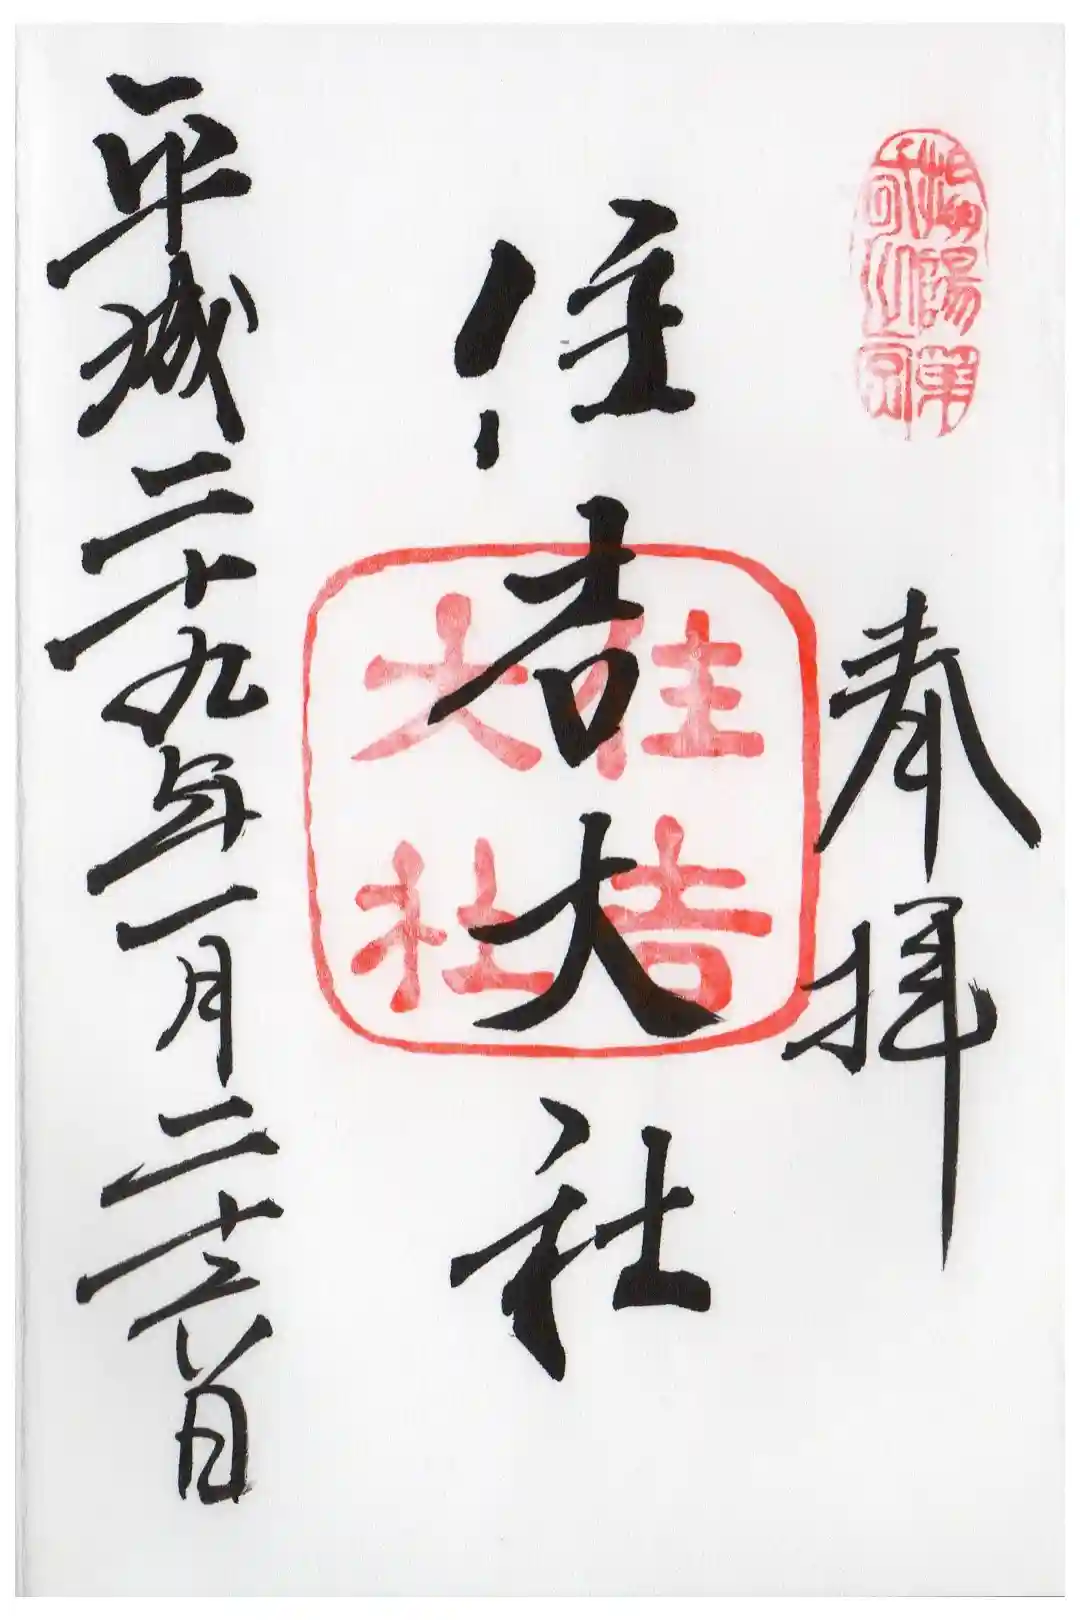 奉拝
住吉大社
住吉
大社
平成二十九年一月二十六日